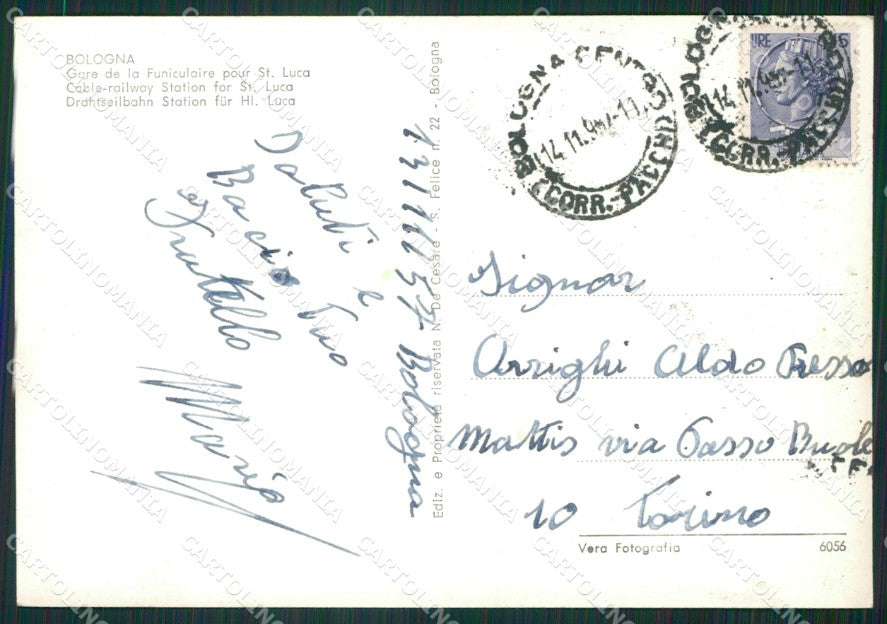 BOLOGNA
Gare de la Funiculaire pour St. Luca
Cable-railway Station for St. Luca
Drahtseilbahn Station für Hl. Luca
Saluti e
Bacio Tuo
Fratello
Mario
13/11/57 Bologna
Ediz. e Proprietà riservata N. De Cesare - S. Felice n. 22 - Bologna
BOLOGNA CENTRO
14.11.957-11
(CORR.-PACCHI)
BOLOGNA CENTRO
14.11.957-11
(CORR.-PACCHI)
LIRE
Signor
Arrighi Aldo Presso
Mattis via Tasso
10 Torino
Vera Fotografia 6056
CARTOLINOMANIA